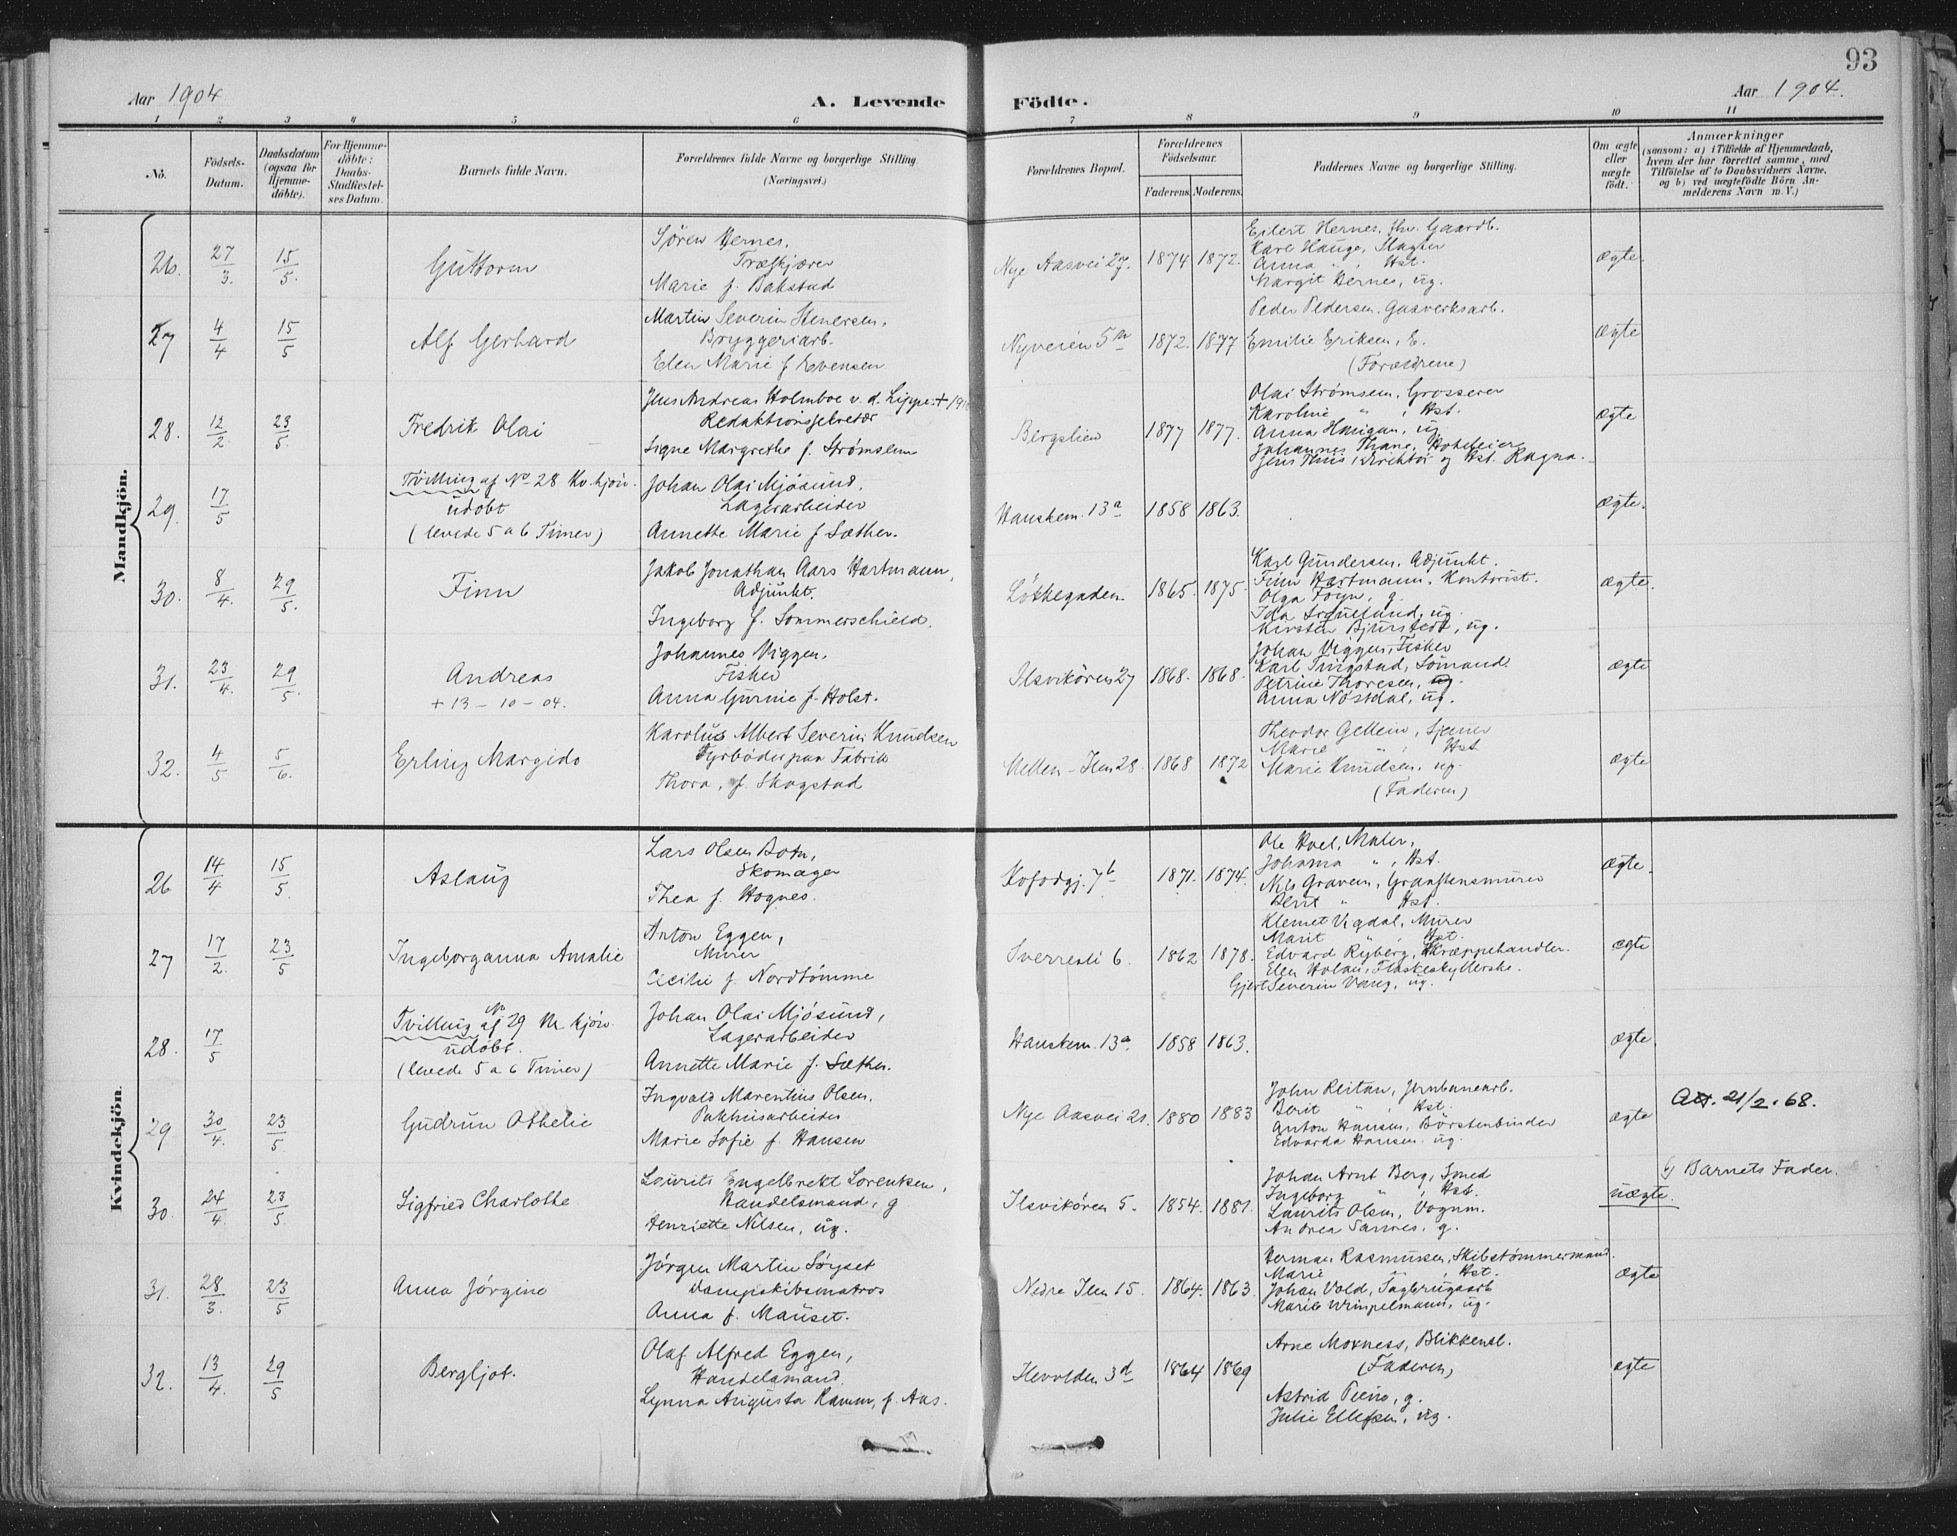 93
Aar 1904
A. Levende
Födte.
Aar 1904.
1 2 3 4 5 6 7 8 9 10 11
No.
Födsels-Datum.
Daabsdatum (ogsaa for Hjemme-döbte).
For Hjemme-döbte: Daabs-Stadfæstel-ses Datum.
Barnets fulde Navn.
Forældrenes fulde Navne og borgerlige Stilling
(Næringsvei.)
Forældrenes Bopæl.
Forældrenes Födselsaar.
Faderens. Moderens.
Faddernes Navne og borgerlige Stilling.
Om ægte eller uægte født.
Anmærkninger
(saasom: a) i Tilfælde af Hjemmedaab,
hvem der har forrettet samme, med
Tilföielse af to Daabsvidners Navne,
og b) ved uægtefödte Börn An-
melderens Navn m. V.)
Mandkjön.
26. 27/3. 15/5. Guttorm
Søren Hernes,
Træskjærer
Marie f. Bakstad
Nye Aasvei 27. 1874 1872.
Eilert Hernes, fhv. Gaardb.
Karl Hauge, Slagter
Anna " , Hst.
Margit Hernes, ug.
ægte.
27 4/4 15/5 Alf Gerhard
Martin Severin Stenersen,
Bryggeriarb.
Elen Marie f Evensen
Nyveien 5 1872. 1877
Peder Pedersen, Gasverksarb.
Emilie Eriksen, E.
(Forældrene)
ægte
28. 12/2 23/5. Fredrik Olai
Jens Andreas Holmboe v. d. Lippe
Redaktionssekretær
Signe Margrethe f. Strømsem
Bergslien 1877 1877.
Olai Strømsem, Grosserer
Karoline " , Hst.
Anna Hanigan, ug.
Johannes Thane, Hoteleier
Jens Thiis, Direktør og Hst. Ragna.
ægte
29. 17/5
Tvilling af No 28 Kv. kjön.
udöbt
(levede 5 a 6 Timer)
Johan Olai Mjösund,
Lagerarbeider
Annette Marie f Sæther.
Hanskem. 13a 1858 1863.
ægte.
30. 8/4. 29/5. Finn
Jakob Jonathan Aars Hartmann,
Adjunkt.
Ingeborg f. Sommerschield.
Løkkegaden 1865. 1875.
Karl Gundersen, Adjunkt.
Finn Hartmann, Kontorist.
Olga Foyn, g.
Kirsten Bjurstedt, ug.
ægte.
31. 23/4. 29/5. Andreas
+ 13 - 10 - 04.
Johannes Viggen,
Fisker
Anna Gurine f. Holst.
Ilsvikören 27 1868. 1868.
Johan Viggen, Fisker
Karl Tingstad, Sömand
Petrine Thoresen, ug.
Anna Nöstdal, ug.
ægte
32. 4/5 5/6. Erling Margido
Karolus Albert Severin Knudsen
Fyrböder paa Fabrik
Thora, f. Skogstad
Mellem-Ilen 28. 1868 1872
Theodor Gellein, Skriver
Marie " , Hst
Marie Knudsen, ug.
(Faderen)
ægte
Kvindekjön.
26 14/4 15/5 Aslaug
Lars Olsen Botn,
Skomager
Thea f. Hognes.
Kofodgj. 7b 1871. 1874.
Ole Hoel, Maler,
Johanna " , Hst.
Nils Gravem, Granstensmurer
Berit " Hst.
ægte.
27 17/2. 23/5 Ingeborganna Amalie
Anton Eggen,
Murer
Cecilie f. Nordtömme
Sverresli 6. 1862 1878.
Klemet Vigdal, Murer
Marit " , Hst.
Edvard Ryberg, Skræppehandler.
Elen Holan, Flaskeskyllerske.
Gjert Severin Vang, ug.
ægte
28. 17/5
Tvilling af No 29 M. kjön.
udöbt.
(levede 5 a 6 Timer)
Johan Olai Mjösund,
Lagerarbeider
Annette Marie f. Sæther.
Hanskem. 13a. 1858 1863.
ægte.
29 30/4. 23/5. Gudrun Othelie
Ingvald Marentius Olsen,
Pakhusarbeider
Marie Sofie f Hansen
Nye Aasvei 21. 1880 1883
John Reitan, Jernbanearb.
Berit " , Hst.
Anton Hansen, Börstenbinder
Edvarda Hansen, ug.
ægte
Att. 21/2. 68.
30. 24/4. 23/5 Sigfried Charlothe
Lourits Engelbrekt Lorentzen,
Handelsmand, g
Henriette Nilsen, ug.
Ilsvikören 5. 1854. 1881.
Johan Arnt Berg, Smed
Ingeborg " , Hst.
Laurits Olsen, Vognm.
Andrea Sannes, g.
uægte.
Barnets Fader.
31. 28/3. 23/5 Anna Jörgine
Jörgen Martin Söyset
Dampskibsmatros
Anna f. Mauset.
Nedre Ilen 15. 1864. 1863.
Herman Rasmussen, Skibstømmermand.
Marie " , Hst.
Johan Vold, Sagbrugsarb.
Marie Wimpelmann, ug.
ægte
32. 13/4. 29/5 Bergljot.
Olaf Alfred Eggen,
Handelsmand.
Lynna Augusta Ramm, f. Aas.
Hevolden 3d 1864 1869
Arne Moxness, Blikkensl.
(Faderen)
Astrid Piene, g.
Julie Ellefsen, ug.
ægte